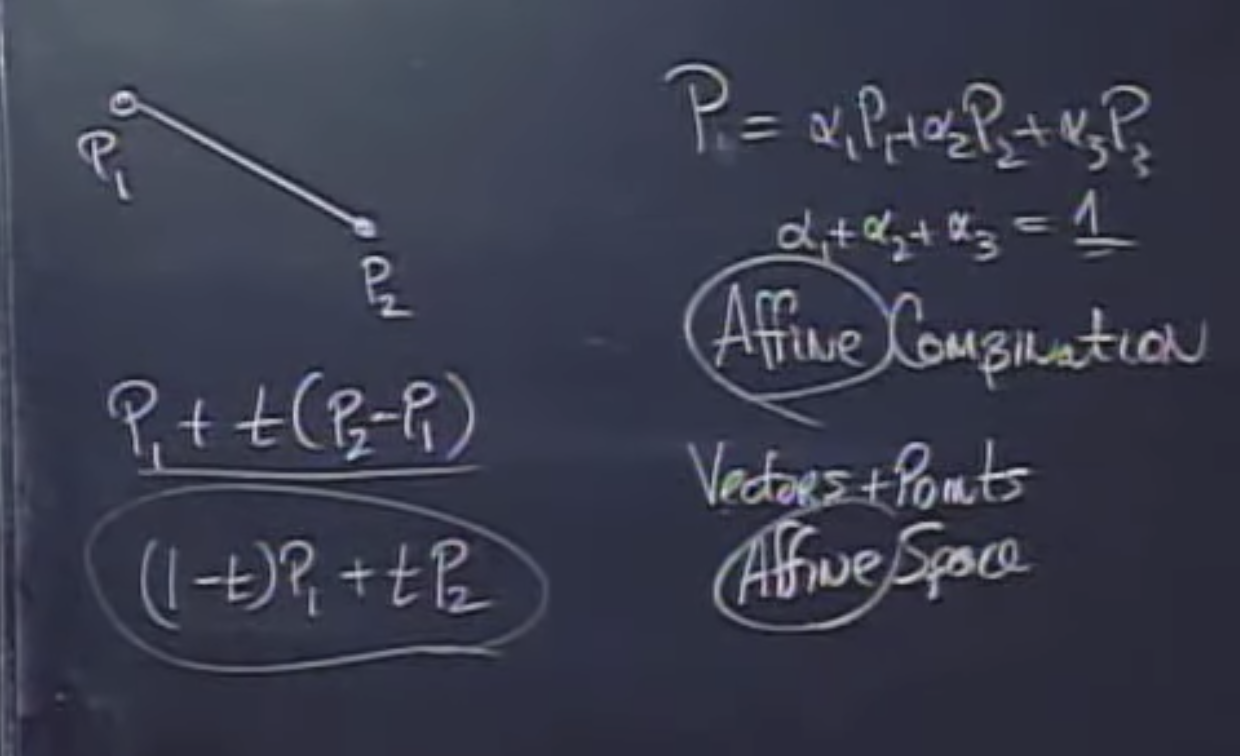 P₁
P₂
P₁ + t(P₂-P₁)
(1-t)P₁ + tP₂
P = α₁P₁+α₂P₂+α₃P₃
α₁+α₂+α₃ = 1
Affine Combination
Vectors+Points
Affine Space